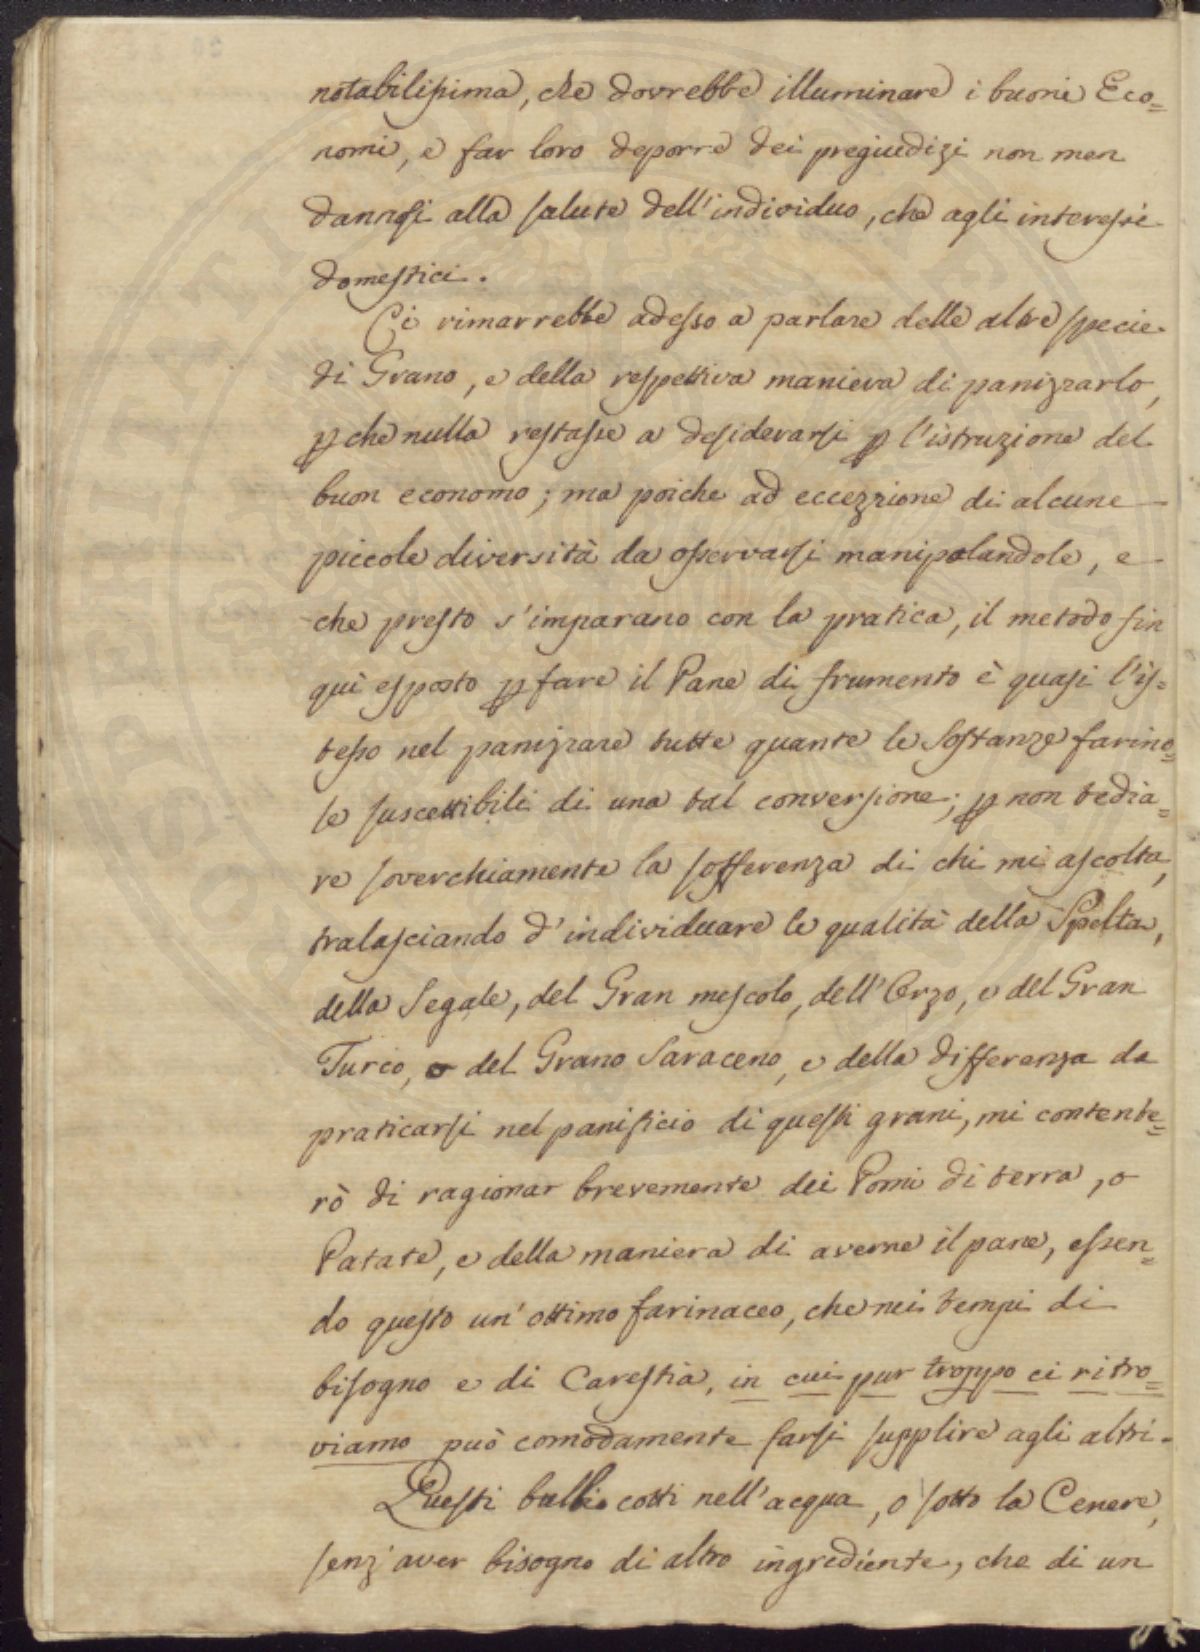 notabilissima, che dovrebbe illuminare i buoni Eco=
nomi, e far loro deporre dei pregiudizi non men
dannosi alla salute dell'individuo, che agli interessi
domestici.
Ci rimarrebbe adesso a parlare delle altre specie
di Grano, e della respettiva maniera di panizzarlo,
pche nulla restasse a desiderarsi p l'istruzione del
buon economo; ma poiche ad eccezzione di alcune
piccole diversità da osservarsi manipolandole, e
che presto s'imparano con la pratica, il metodo fin
qui esposto p fare il Pane di frumento è quasi l'is=
tesso nel panizzare tutte quante le Sostanze farino=
se suscettibili di una tal conversione; p non tedia=
re soverchiamente la sofferenza di chi mi ascolta,
tralasciando d'individuare le qualità della Spelta,
della Segale, del Gran mescolo, dell'Orzo, e del Gran
Turco, o del Grano Saraceno, e della differenza da
praticarsi nel panificio di questi grani, mi contente=
rò di ragionar brevemente dei Pomi di terra, o
Patate, e della maniera di averne il pane, essen=
do questo un'ottimo farinaceo, che nei tempi di
bisogno e di Carestia, in cui pur troppo ci ritro=
viamo può comodamente farsi supplire agli altri.
Questi bulbi cotti nell'acqua, o sotto la Cenere,
senz'aver bisogno di altro ingrediente, che di un